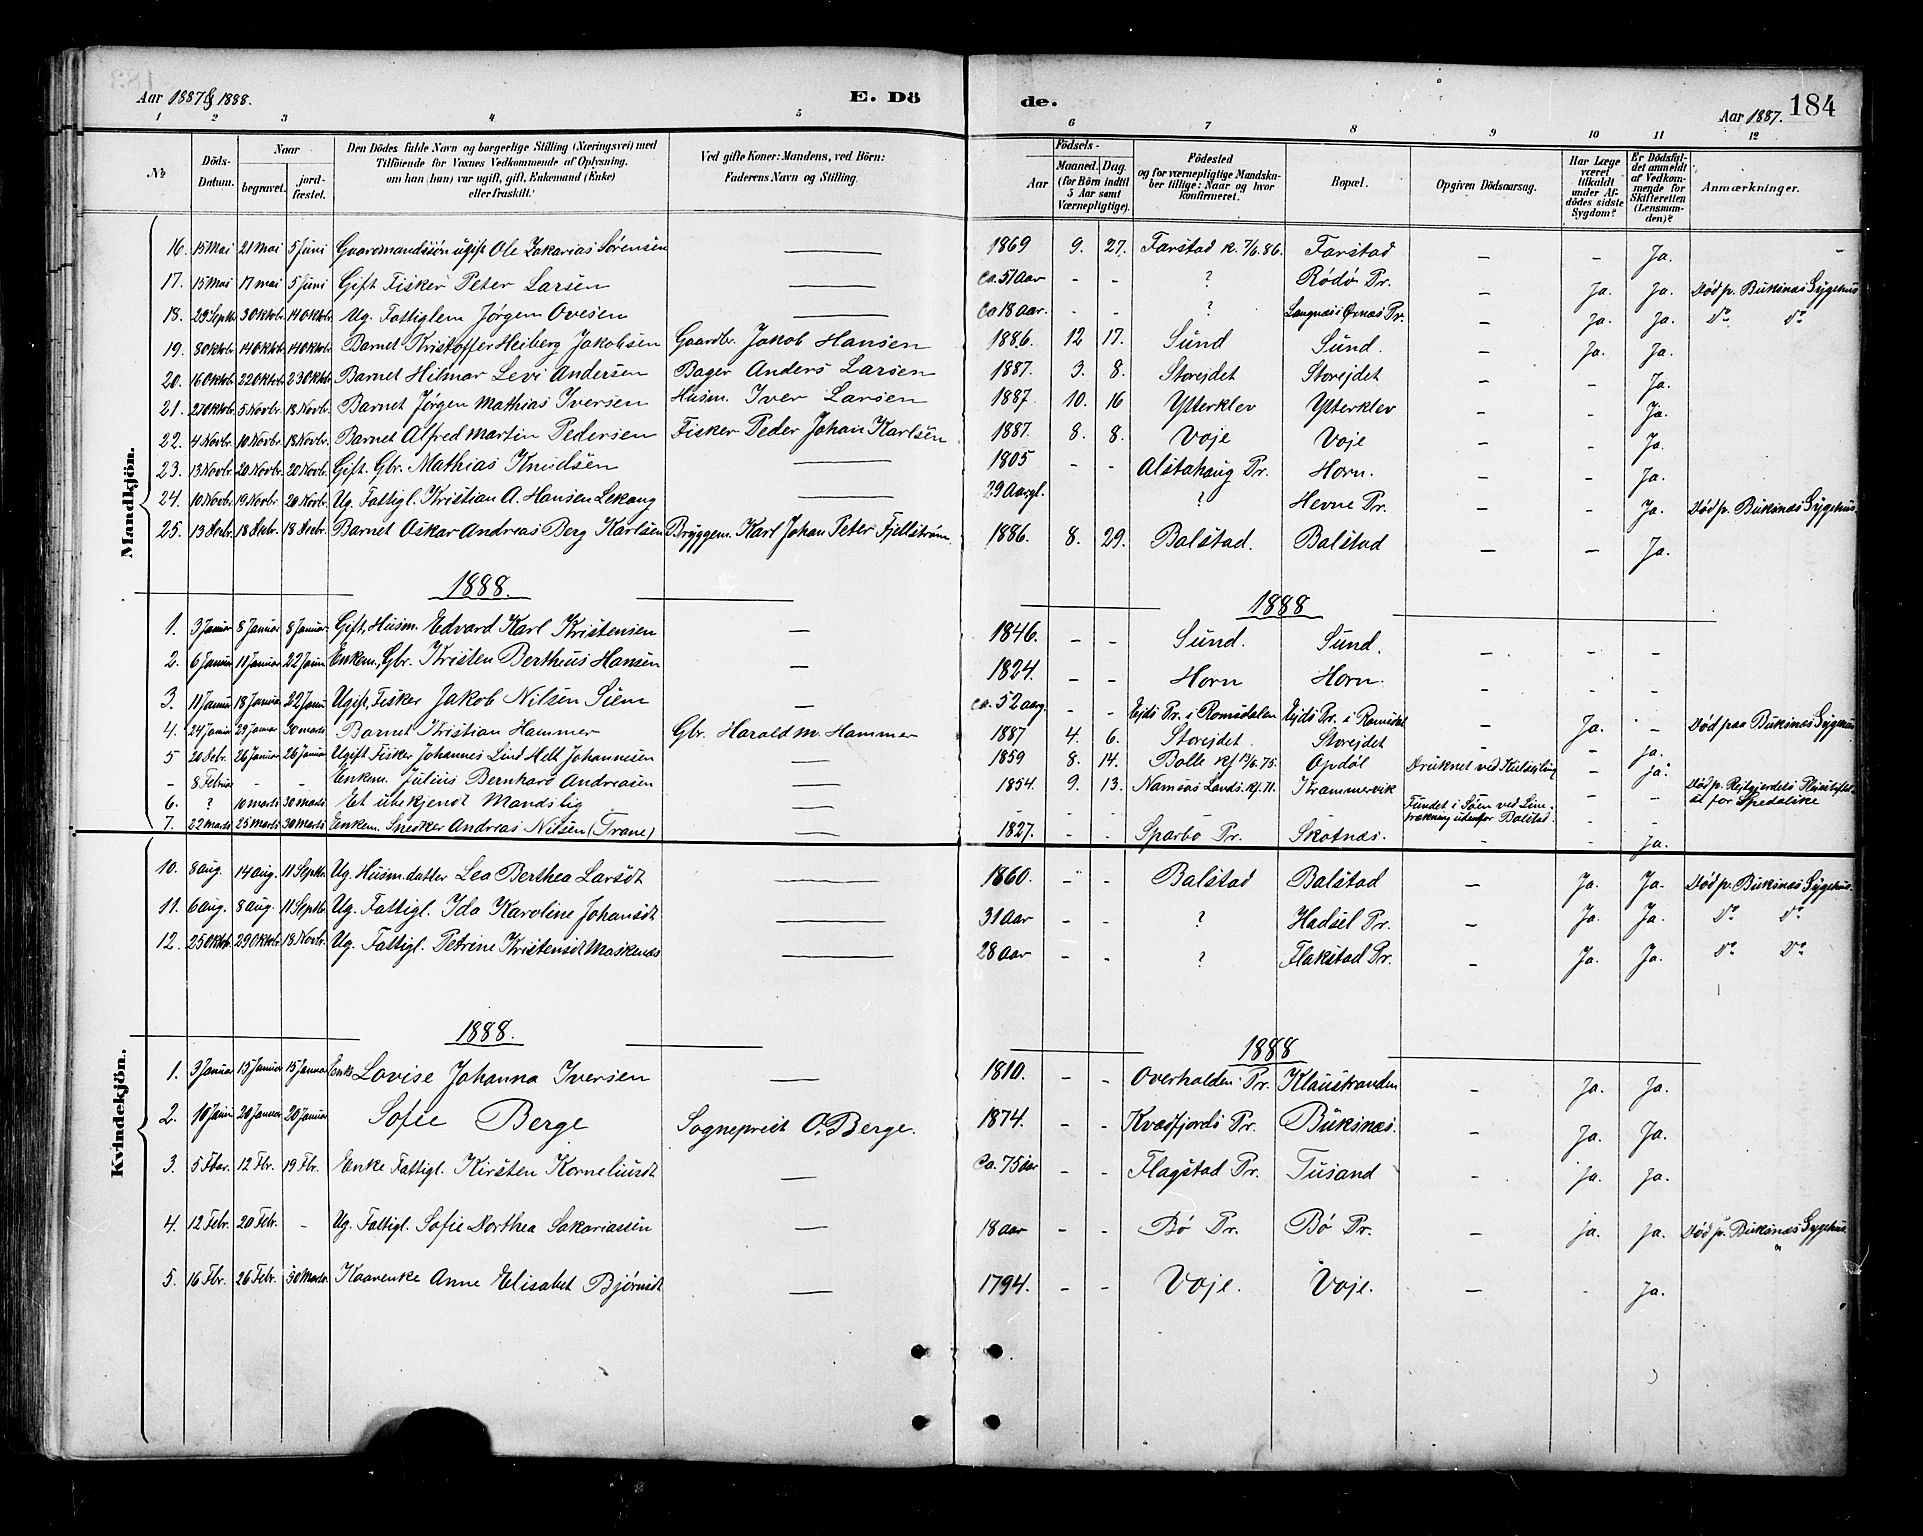 Aar 1887 & 1888. E. Dö de. Aar 1887. 184
1 2 3 4 5 6 7 8 9 10 11 12
No Döds-Datum. Naar begravet. jord-fæstet. Den Dödes fulde Navn og borgerlige Stilling (Næringsvei) med Tilföiende for Voxnes Vedkommende af Oplysning, om han (hun) var ugift, gift, Enkemand (Enke) eller fraskilt. Ved gifte Koner: Mandens, ved Börn: Faderens Navn og Stilling. Födsels- Aar Maaned. Dag. (for Börn indtil 5 Aar samt Værnepligtige). Födested og for værnepligtige Mandskaber tillige: Naar og hvor konfirmeret. Bopæl. Opgiven Dödsaarsag. Har Læge været tilkaldt under Afdödes sidste Sygdom? Er Dödsfaldet anmeldt af Vedkommende for Skifteretten (Lensmanden)? Anmærkninger.
Mandkjön.
16. 15 Mai 21 Mai 5 Juni Gaardmandssøn ugift Ole Zakarias Sørensen — 1869 9. 27. Farstad k. 7/6.86. Farstad — — Ja. —
17. 15 Mai 17 mai 5 Juni Gift Fisker Peter Larsen — ca. 51 Aar - - ? Rödö Pr. — Ja. Ja. Död p. Buksnæs Sygehus
18. 29 Septbr 3 Oktbr 14 Oktbr Ug. Fattiglem Jørgen Ovesen — ca 18 aar. - - ? Langnæs i Ørnæs Pr. — ja. ja. do do
19. 8 Oktbr 14 Oktbr 14 Oktbr. Barnet Kristoffer Heiberg Jakobsen Gaardbr. Jakob Hansen 1886. 12 17. Sund Sund. — ja. Ja.
20. 16 Oktbr. 22 Oktbr. 23 Oktbr. Barnet Hilmar Levi Andersen Bager Anders Larsen 1887. 3. 8. Storejdet Storejdet — — Ja.
21. 27 Oktbr. 5 Novbr. 18 Novbr. Barnet Jørgen Mathias Iversen Husm. Iver Larsen 1887 10. 16 Ytterklev Ytterklev — - Ja.
22. 4 Novbr. 10 Novbr. 18 Novbr. Barnet Alfred Martin Pedersen Fisker Peder Johan Karlsen 1887. 8. 8. Voje Voje — - Ja.
23. 13 Novbr. 20 Novbr. 20 Novbr. Gift. Gbr. Mathias Knudsen — 1805 - - Alstahaug Pr. Horn. — - Ja.
24. 10 Novbr. 19 Novbr. 20 Novbr. Ug. Fattigl. Kristian A. Hansen Lekang 29 Aar gl. ? Hevne Pr. — - Ja. Död p. Buksnæs Sygehus.
25. 13 Decbr. 18 Decbr. 18 Decbr. Barnet Oskar Andreas Berg Karlsen Bryggem. Karl Johan Peter Fjellstrøm. 1886. 8. 29. Balstad. Balstad — — Ja.
1888. 1888
1. 3 Januar 8 Januar 8 Januar. Gift, Husm. Edvard Karl Kristensen — 1846. - - Sund. Sund. — — —
2. 6 Januar 11 Januar 22 Janu Enkem., Gbr. Kristen Bertheus Hansen — 1824. - - Horn Horn. - - -
3. 11 Januar 18 Januar 22 Janu Ugift, Fisker Jakob Nilsen Siem — ca. 52 aar g. - - Ejds Pr. i Romsdalen Ejds Pr. i Romsdal - Ja. - Död paa Buksnæs Sygehus
4. 24 Januar 29 Januar 30 marts Barnet Kristian Hammer Gbr. Harald M. Hammer 1887 4. 6. Storejdet. Storejdet - - ja.
5 20 Debr. 26 Januar 28 Januar Ugift Fisker Johannes Lind Helt Johannesen — 1859 8. 14. Bolle kf 13/6.75. Opdöl Druknet ved Kulseiling - ja.
- 8 Februar - - Enkem. Julius Bernhard Andreasen — 1854. 9. 13. Namsos Lands. kf. 71. Krammervik - - Död p. Rejtgjerdets Plejestiftelse for Spedalske
6. ? 10 marts 30 marts Et ubekjendt Mandslig — - - Fundet i Söen ved Linetrækning udenfor Balstad. - -
7. 22 marts 25 Marts 30 Marts Enkem. Snedker Andreas Nilsen (Trane) — 1827. - - Sparbo Pr. Skotnæs. - - Ja.
Kvindekjön.
10. 8 aug. 14 aug. 11 Septbr. Ug. Husm. datter Lea Berthea Larsdt — 1860. - - Balstad Balstad — Ja. Ja. Död p. Buksnæs Sygehus.
11. 6 aug. 8 aug. 11 Septbr. Ug. Fattigl. Ida Karoline Johansdt — 31 Aar - - ? Hadsel Pr. — Ja. Ja. do do
12. 25 Oktbr. 29 Oktbr. 18 Novbr. Ug. Fattigl. Petrine Kristensdt Moskenæs — 28 Aar - - ? Flakstad Pr. — Ja. Ja. do Do
1888. 1888
1. 3 Januar 15 Januar 15 Januar Enke Lovise Johanna Iversen — 1810. - - Overhalden Pr. Klaustranden - Ja. Ja.
2. 10 Janu 20 Januar 20 Januar Sofie Berge Sogneprest O. Berge. 1874. - - Kvædfjords Pr. Buksnæs. - Ja. Ja.
3. 5 Fbar. 12 Fbr. 19 Fbr. Enke Fattigl. Kirsten Korneliusdt — Ca. 75 aar - - Flagstad Pr. Tusand - ja. Ja.
4. 12 Febr. 20 Febr. - Ug. Fattigl. Sofie Dorthea Sakariassen — 18 aar - - Bö Pr. Bö Pr. — ja. ja. Död p. Buksnæs Sygehus.
5. 16 Fbr. 26 Febr. 30 Marts. Kaarenke Anne Elisabet Bjørnsdt — 1794. - - Voje. Voje. — - Ja.